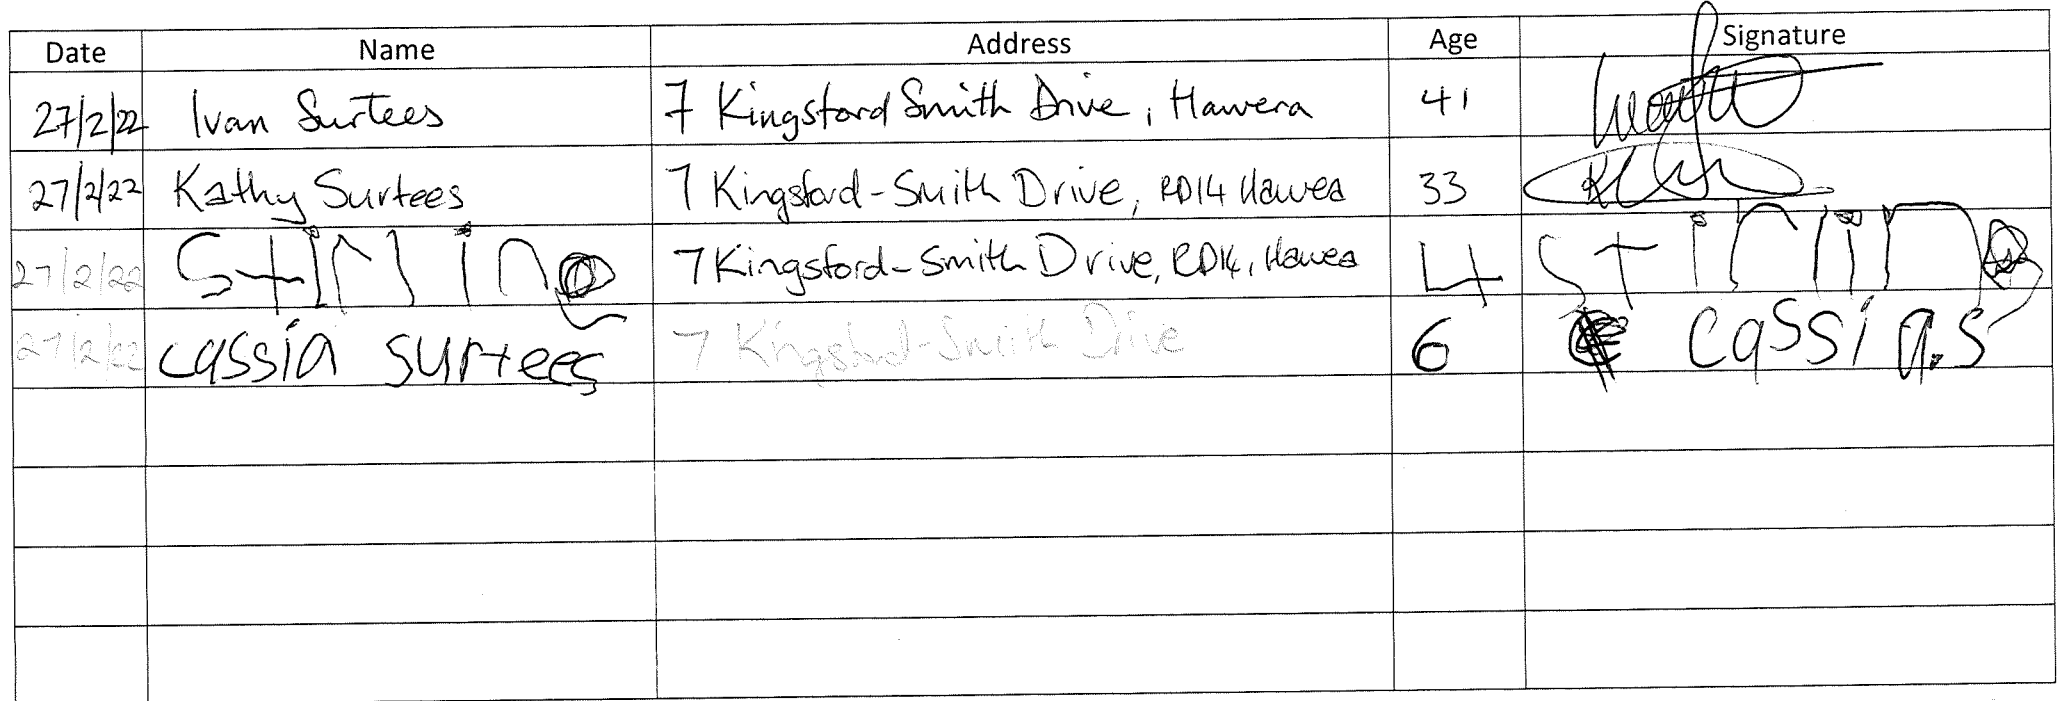 Date Name Address Age Signature
27/2/22 Ivan Surtees 7 Kingsford Smith Drive, Hawera 41
27/2/22 Kathy Surtees 7 Kingsford-Smith Drive, RD14 Hawea 33
27/2/22 7 Kingsford-Smith Drive, RD14, Hawea 4
27/2/22 cassia surtees 7 Kingsford-Smith Drive 6 cassia.s